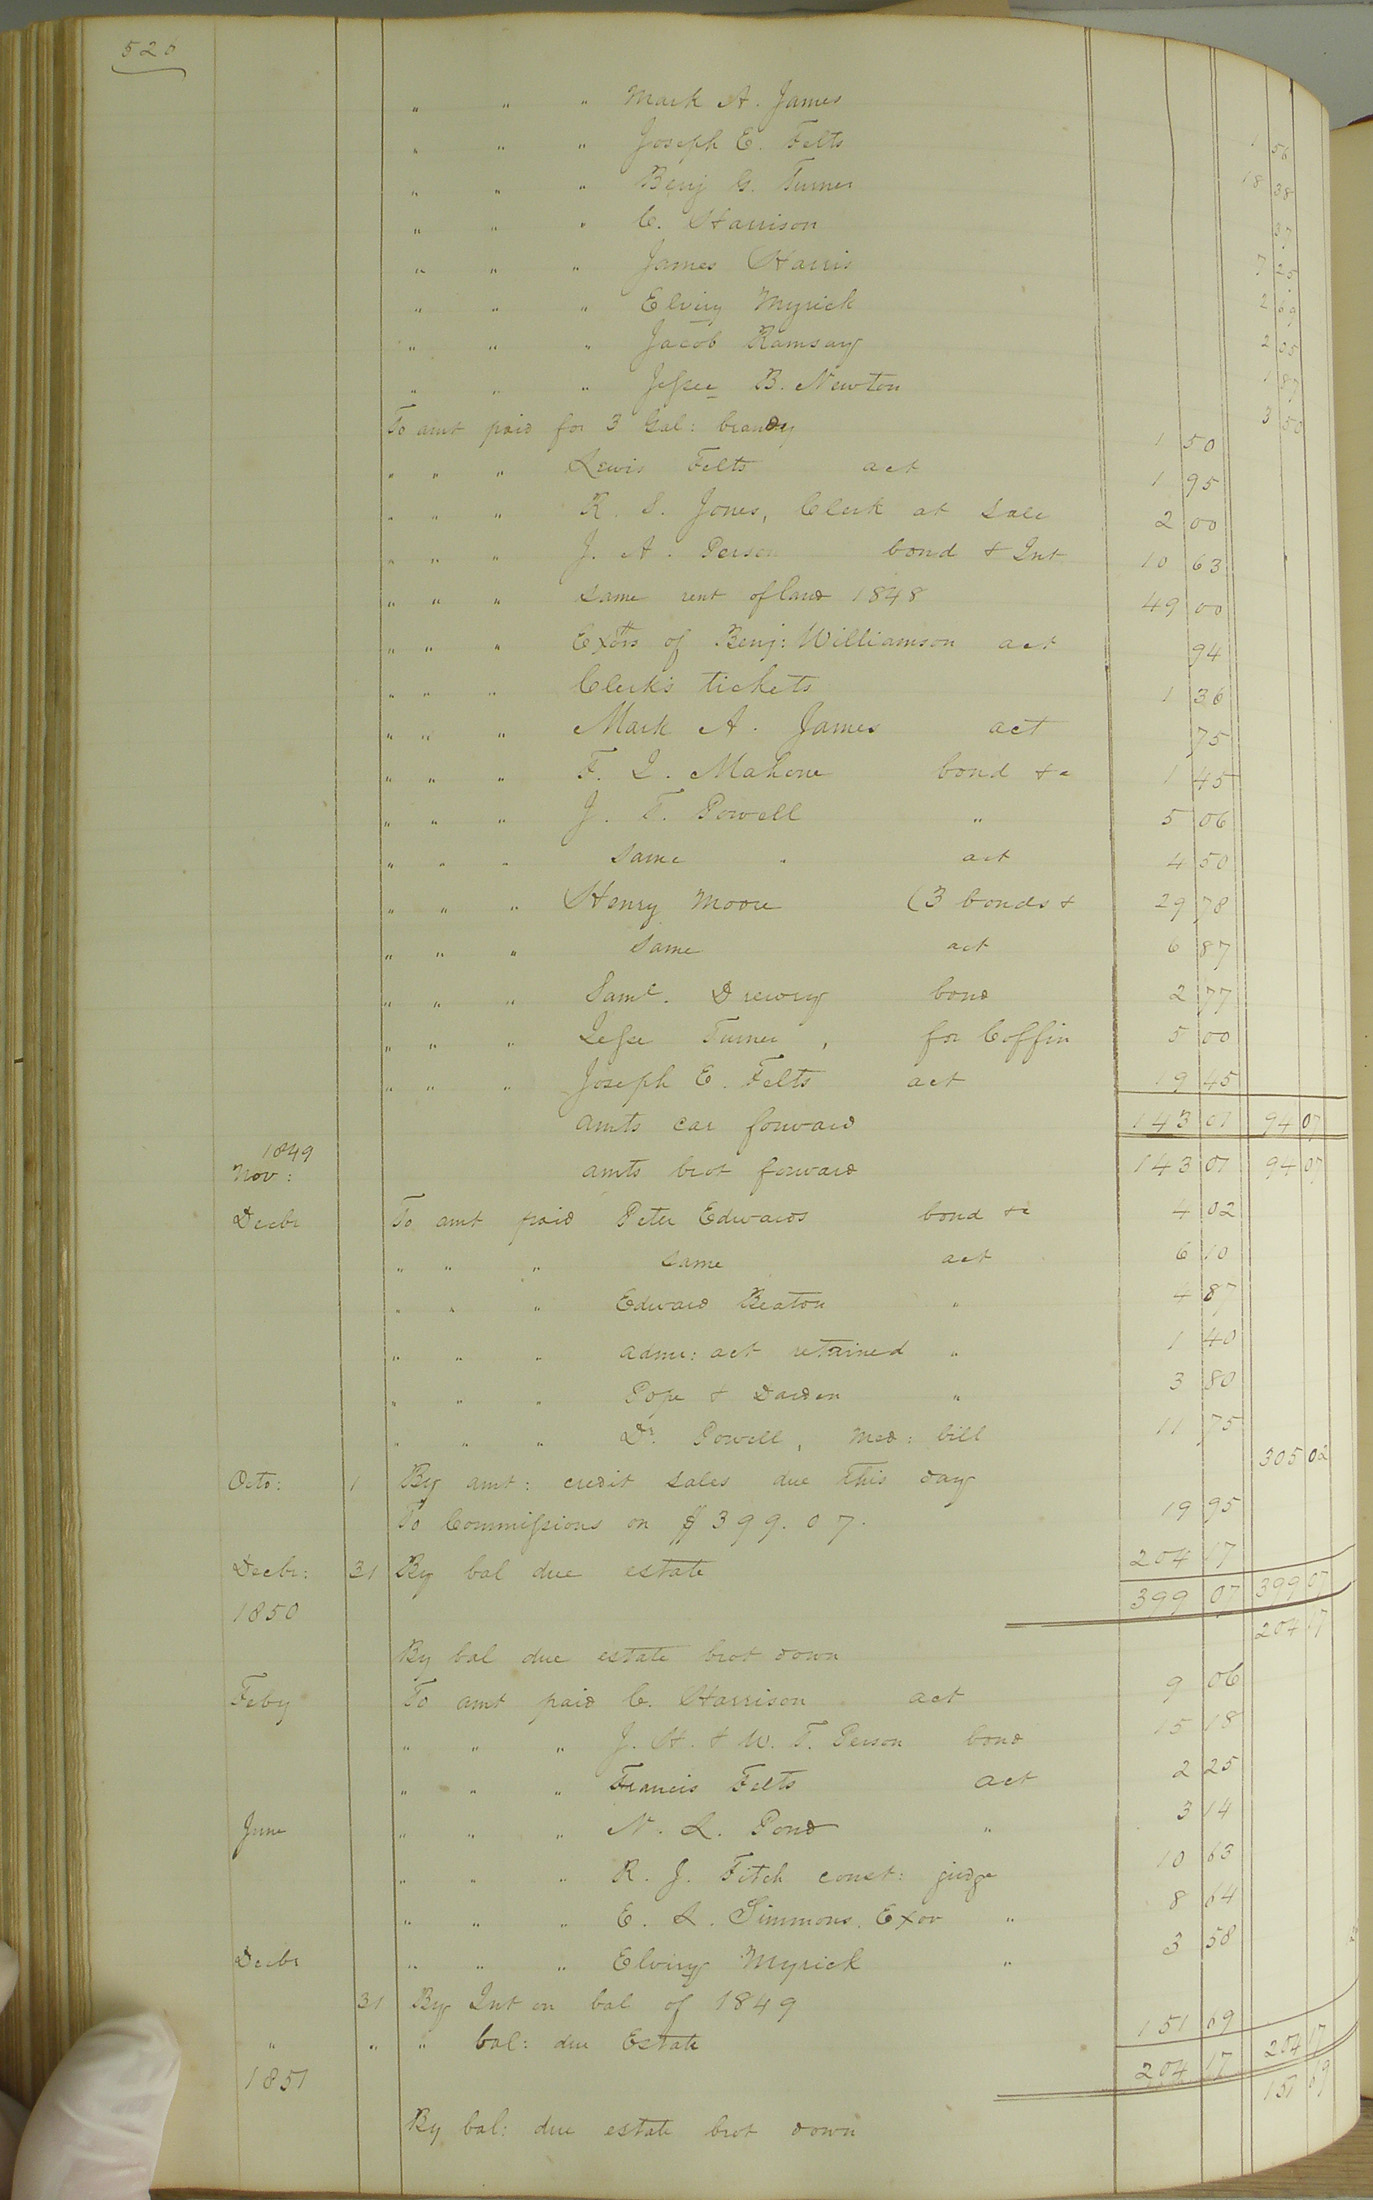 526
" " " Mark A. James 1 56
" " " Joseph E. Felts 18 38
" " " Benj G. Turner 37
" " " C. Harrison 7 25
" " " James Harris 2 69
" " " Elviry Myrick 2 05
" " " Jacob Ramsay 1 87
" " " Jessee B. Newton 3 50
To amt paid for 3 Gal: brandy 1 50
" " " Lewis Felts act 1 95
" " " R. S. Jones, Clerk at Sale 2 00
" " " J. A. Person bond & Int 10 63
" " " same rent of land 1848 49 00
" " " Exors of Benj: Williamson act 94
" " " Clerk's tickets 1 36
" " " Mark A. James act 75
" " " F. L. Mahone bond &c 1 45
" " " J. T. Powell " 5 06
" " " same " act 4 50
" " " Henry Moore (3 bonds & 29 78
" " " same act 6 87
" " " Saml. Drewry bond 2 77
" " " Jesse Turner, for Coffin 5 00
" " " Joseph E. Felts act 19 45
amts car forward 143 01 94 07
1849
Nov: amts brot forward 143 01 94 07
Decbr To amt paid Peter Edwards bond &c 4 02
" " " same act 6 10
" " " Edward Beaton " 4 87
" " " admr: act retained " 1 40
" " " Pope & Darden " 3 80
" " " Dr. Powell, Med: bill 11 75
Octo: 1 By amt: credit sales due this day 305 02
To Commissions on $399.07. 19 95
Decbr: 31 By bal due estate 204 17
1850 399 07 399 07
By bal due estate brot down 204 17
Feby To amt paid C. Harrison act 9 06
" " " J. H. & W. T. Person bond 15 18
" " " Francis Felts act 2 25
June " " " N. L. Pond " 3 14
" " " R. J. Fitch const: judge 10 63
" " " E. L. Simmons, Exor " 8 64
Decbr " " " Elviry Myrick " 3 58
31 By Int on bal of 1849
" " " bal: due Estate 151 69
1851 204 17 204 17
By bal: due estate brot down 151 69